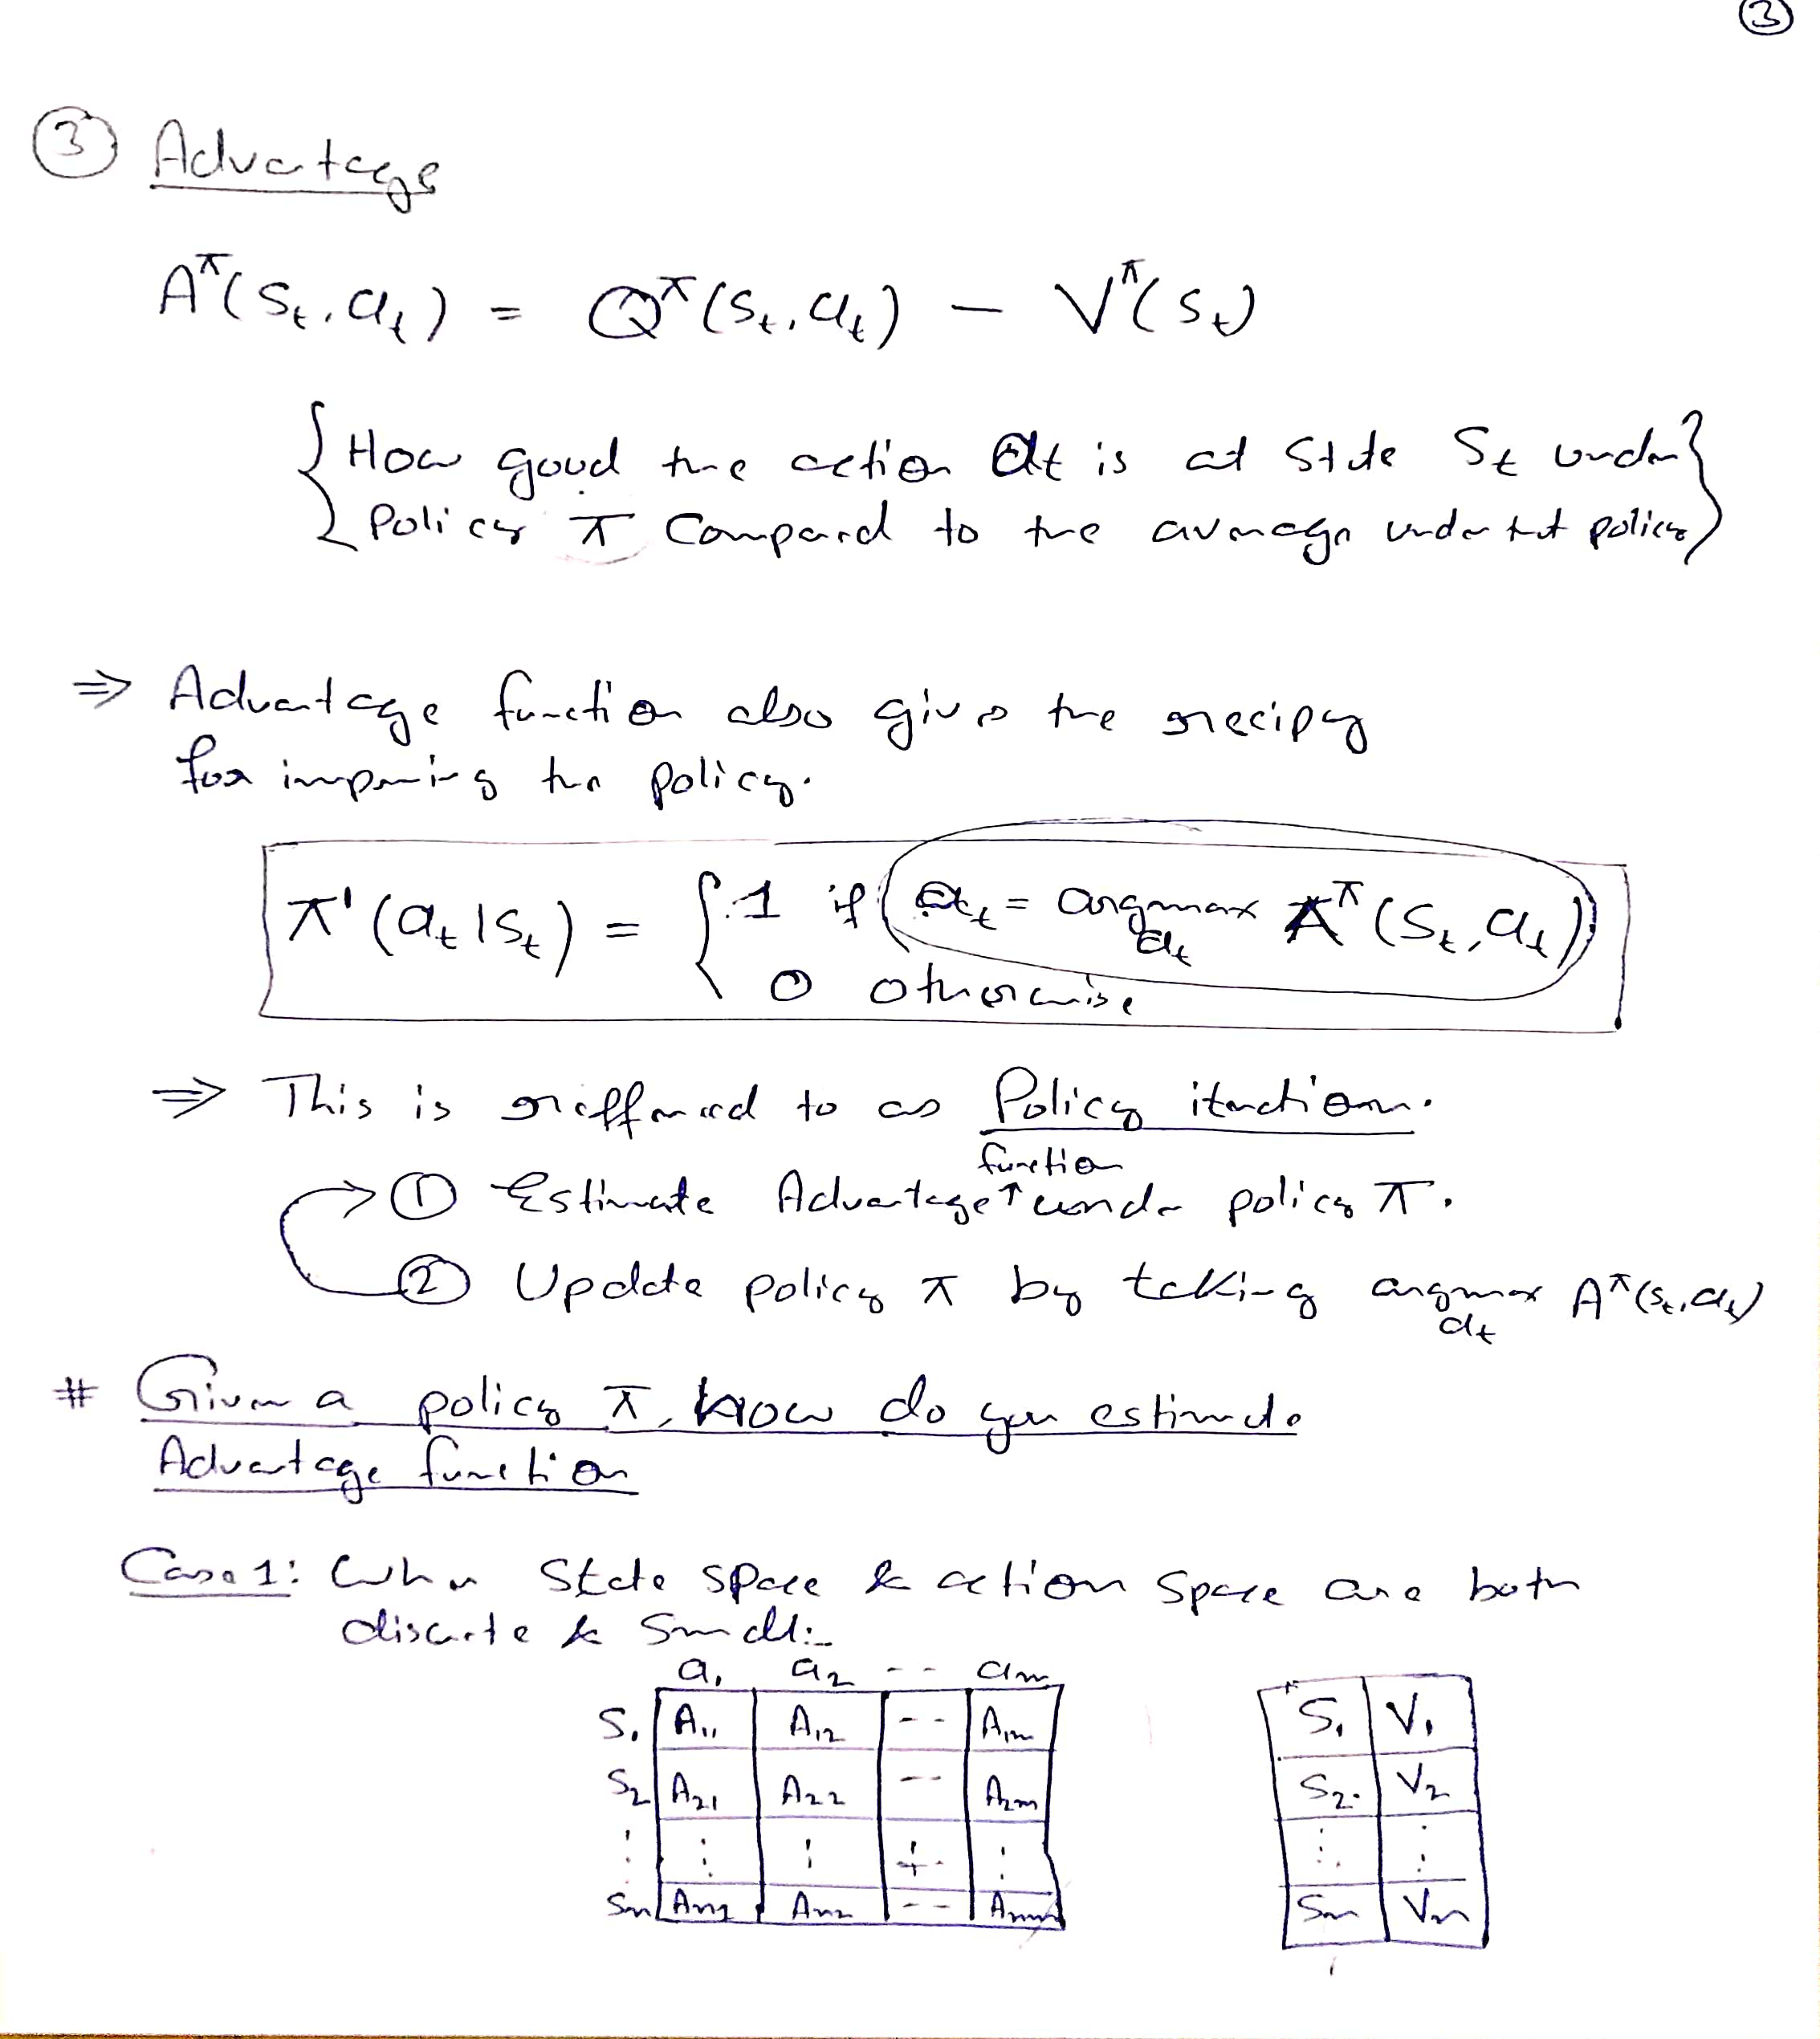 ③
③ Advantage
A^π(s_t, a_t) = Q^π(s_t, a_t) − V^π(s_t)
{ How good the action a_t is at state s_t under
Policy π compared to the average under that policy }
⇒ Advantage function also gives the recipy
for improving the policy.
π'(a_t|s_t) = { 1 if a_t = argmax_{a_t} A^π(s_t, a_t)
0 otherwise
⇒ This is reffered to as Policy iteration.
① Estimate Advantage function under policy π.
② Update policy π by taking argmax_{a_t} A^π(s_t, a_t)
# Given a policy π, how do you estimate
Advantage function
Case 1: When State space & action space are both
discrete & small:-
a_1 a_2 -- a_m
S_1 A_11 A_12 -- A_1m
S_2 A_21 A_22 -- A_2m
⋮ ⋮ ⋮ ⋮ ⋮
S_n A_n1 A_n2 -- A_nm
S_1 V_1
S_2 V_2
⋮ ⋮
S_n V_n